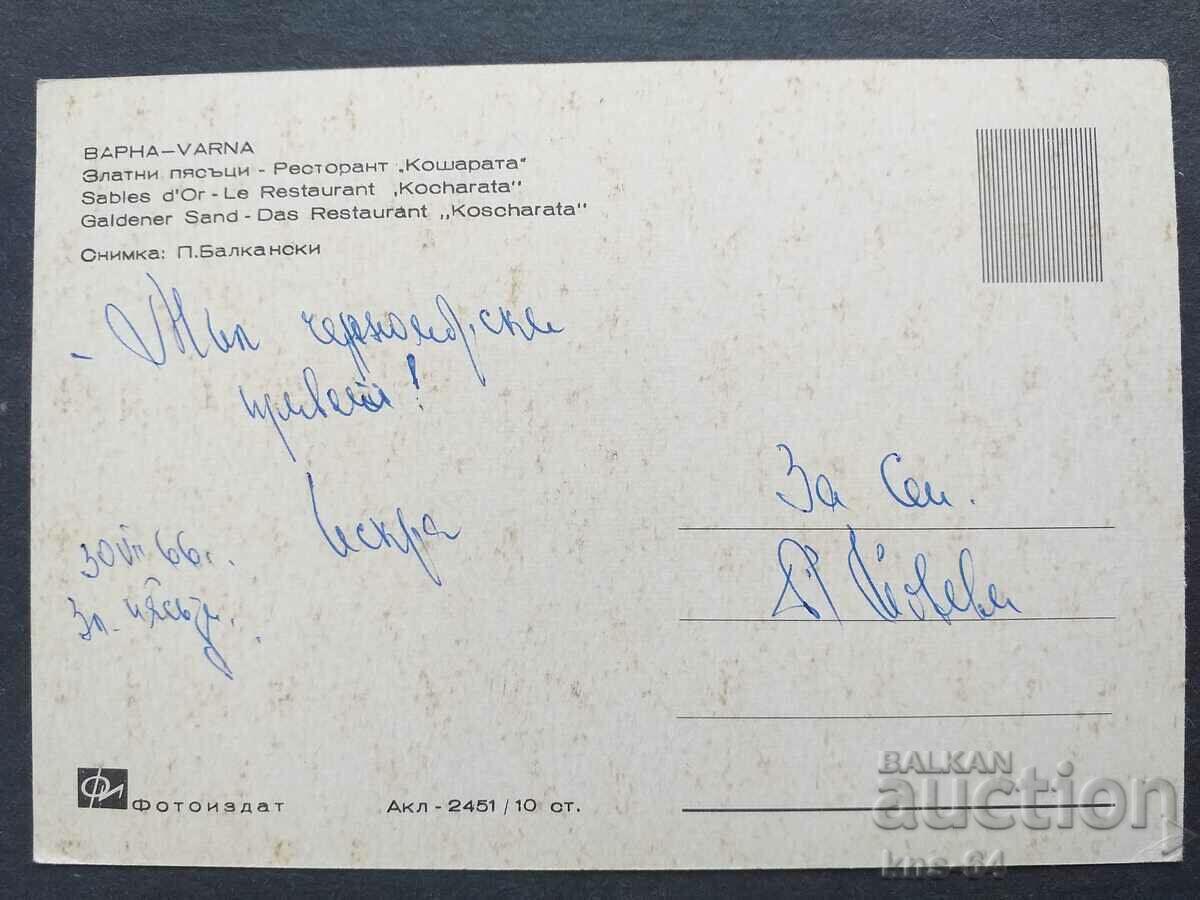 ВАРНА–VARNA
Златни пясъци - Ресторант „Кошарата"
Sables d'Or - Le Restaurant ,Kocharata"
Galdener Sand - Das Restaurant ,,Koscharata"
Снимка: П.Балкански
- Мил черноморски
привет!
Искра
30 VII 66 г.
Зл. пясъци.
За Сем.
Йовеви
ФИ
Фотоиздат
Акл - 2451 / 10 ст.
BALKAN
auction
kns-64